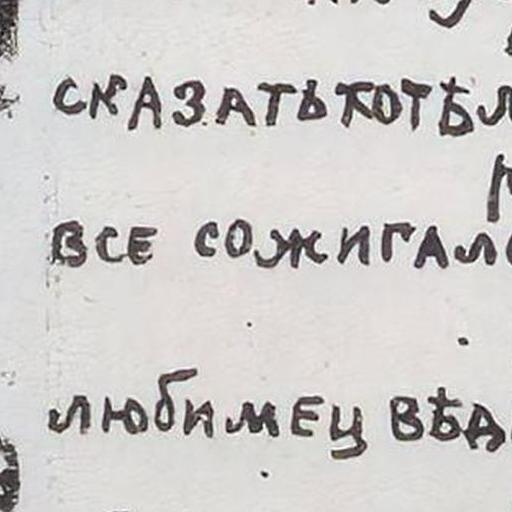 СКАЗАТЬ КОТѢЛ
ВСЕ СОЖИГАЛ
ЛЮБИМЕЦ ВѢД